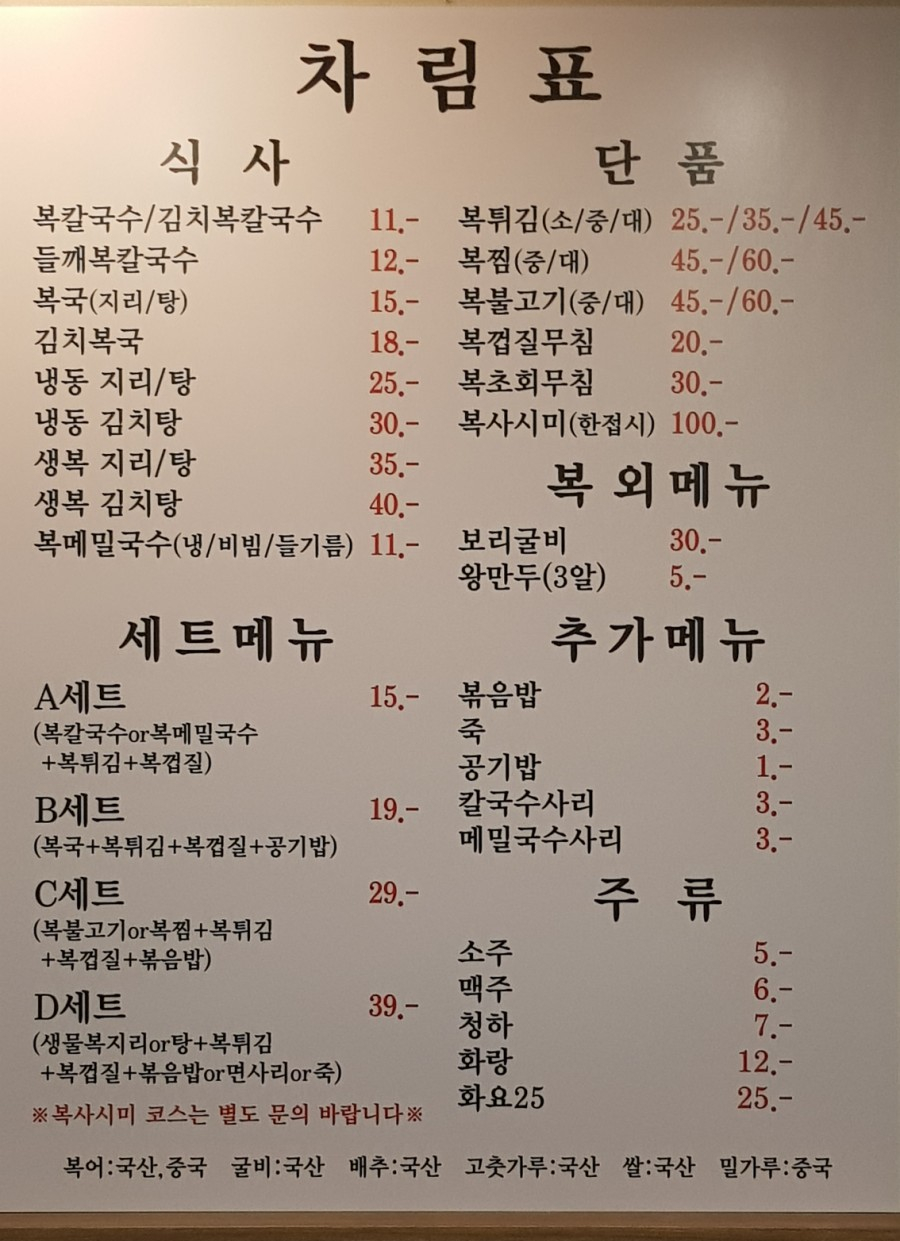 차림표
식사
복칼국수/김치복칼국수 11.-
들깨복칼국수 12.-
복국(지리/탕) 15.-
김치복국 18.-
냉동 지리/탕 25.-
냉동 김치탕 30.-
생복 지리/탕 35.-
생복 김치탕 40.-
복메밀국수(냉/비빔/들기름) 11.-
단품
복튀김(소/중/대) 25.-/35.-/45.-
복찜(중/대) 45.-/60.-
복불고기(중/대) 45.-/60.-
복껍질무침 20.-
복초회무침 30.-
복사시미(한접시) 100.-
복 외메뉴
보리굴비 30.-
왕만두(3알) 5.-
세트메뉴
A세트 15.-
(복칼국수or복메밀국수
+복튀김+복껍질)
B세트 19.-
(복국+복튀김+복껍질+공기밥)
C세트 29.-
(복불고기or복찜+복튀김
+복껍질+볶음밥)
D세트 39.-
(생물복지리or탕+복튀김
+복껍질+볶음밥or면사리or죽)
※복사시미 코스는 별도 문의 바랍니다※
추가메뉴
볶음밥 2.-
죽 3.-
공기밥 1.-
칼국수사리 3.-
메밀국수사리 3.-
주류
소주 5.-
맥주 6.-
청하 7.-
화랑 12.-
화요25 25.-
복어:국산,중국 굴비:국산 배추:국산 고춧가루:국산 쌀:국산 밀가루:중국